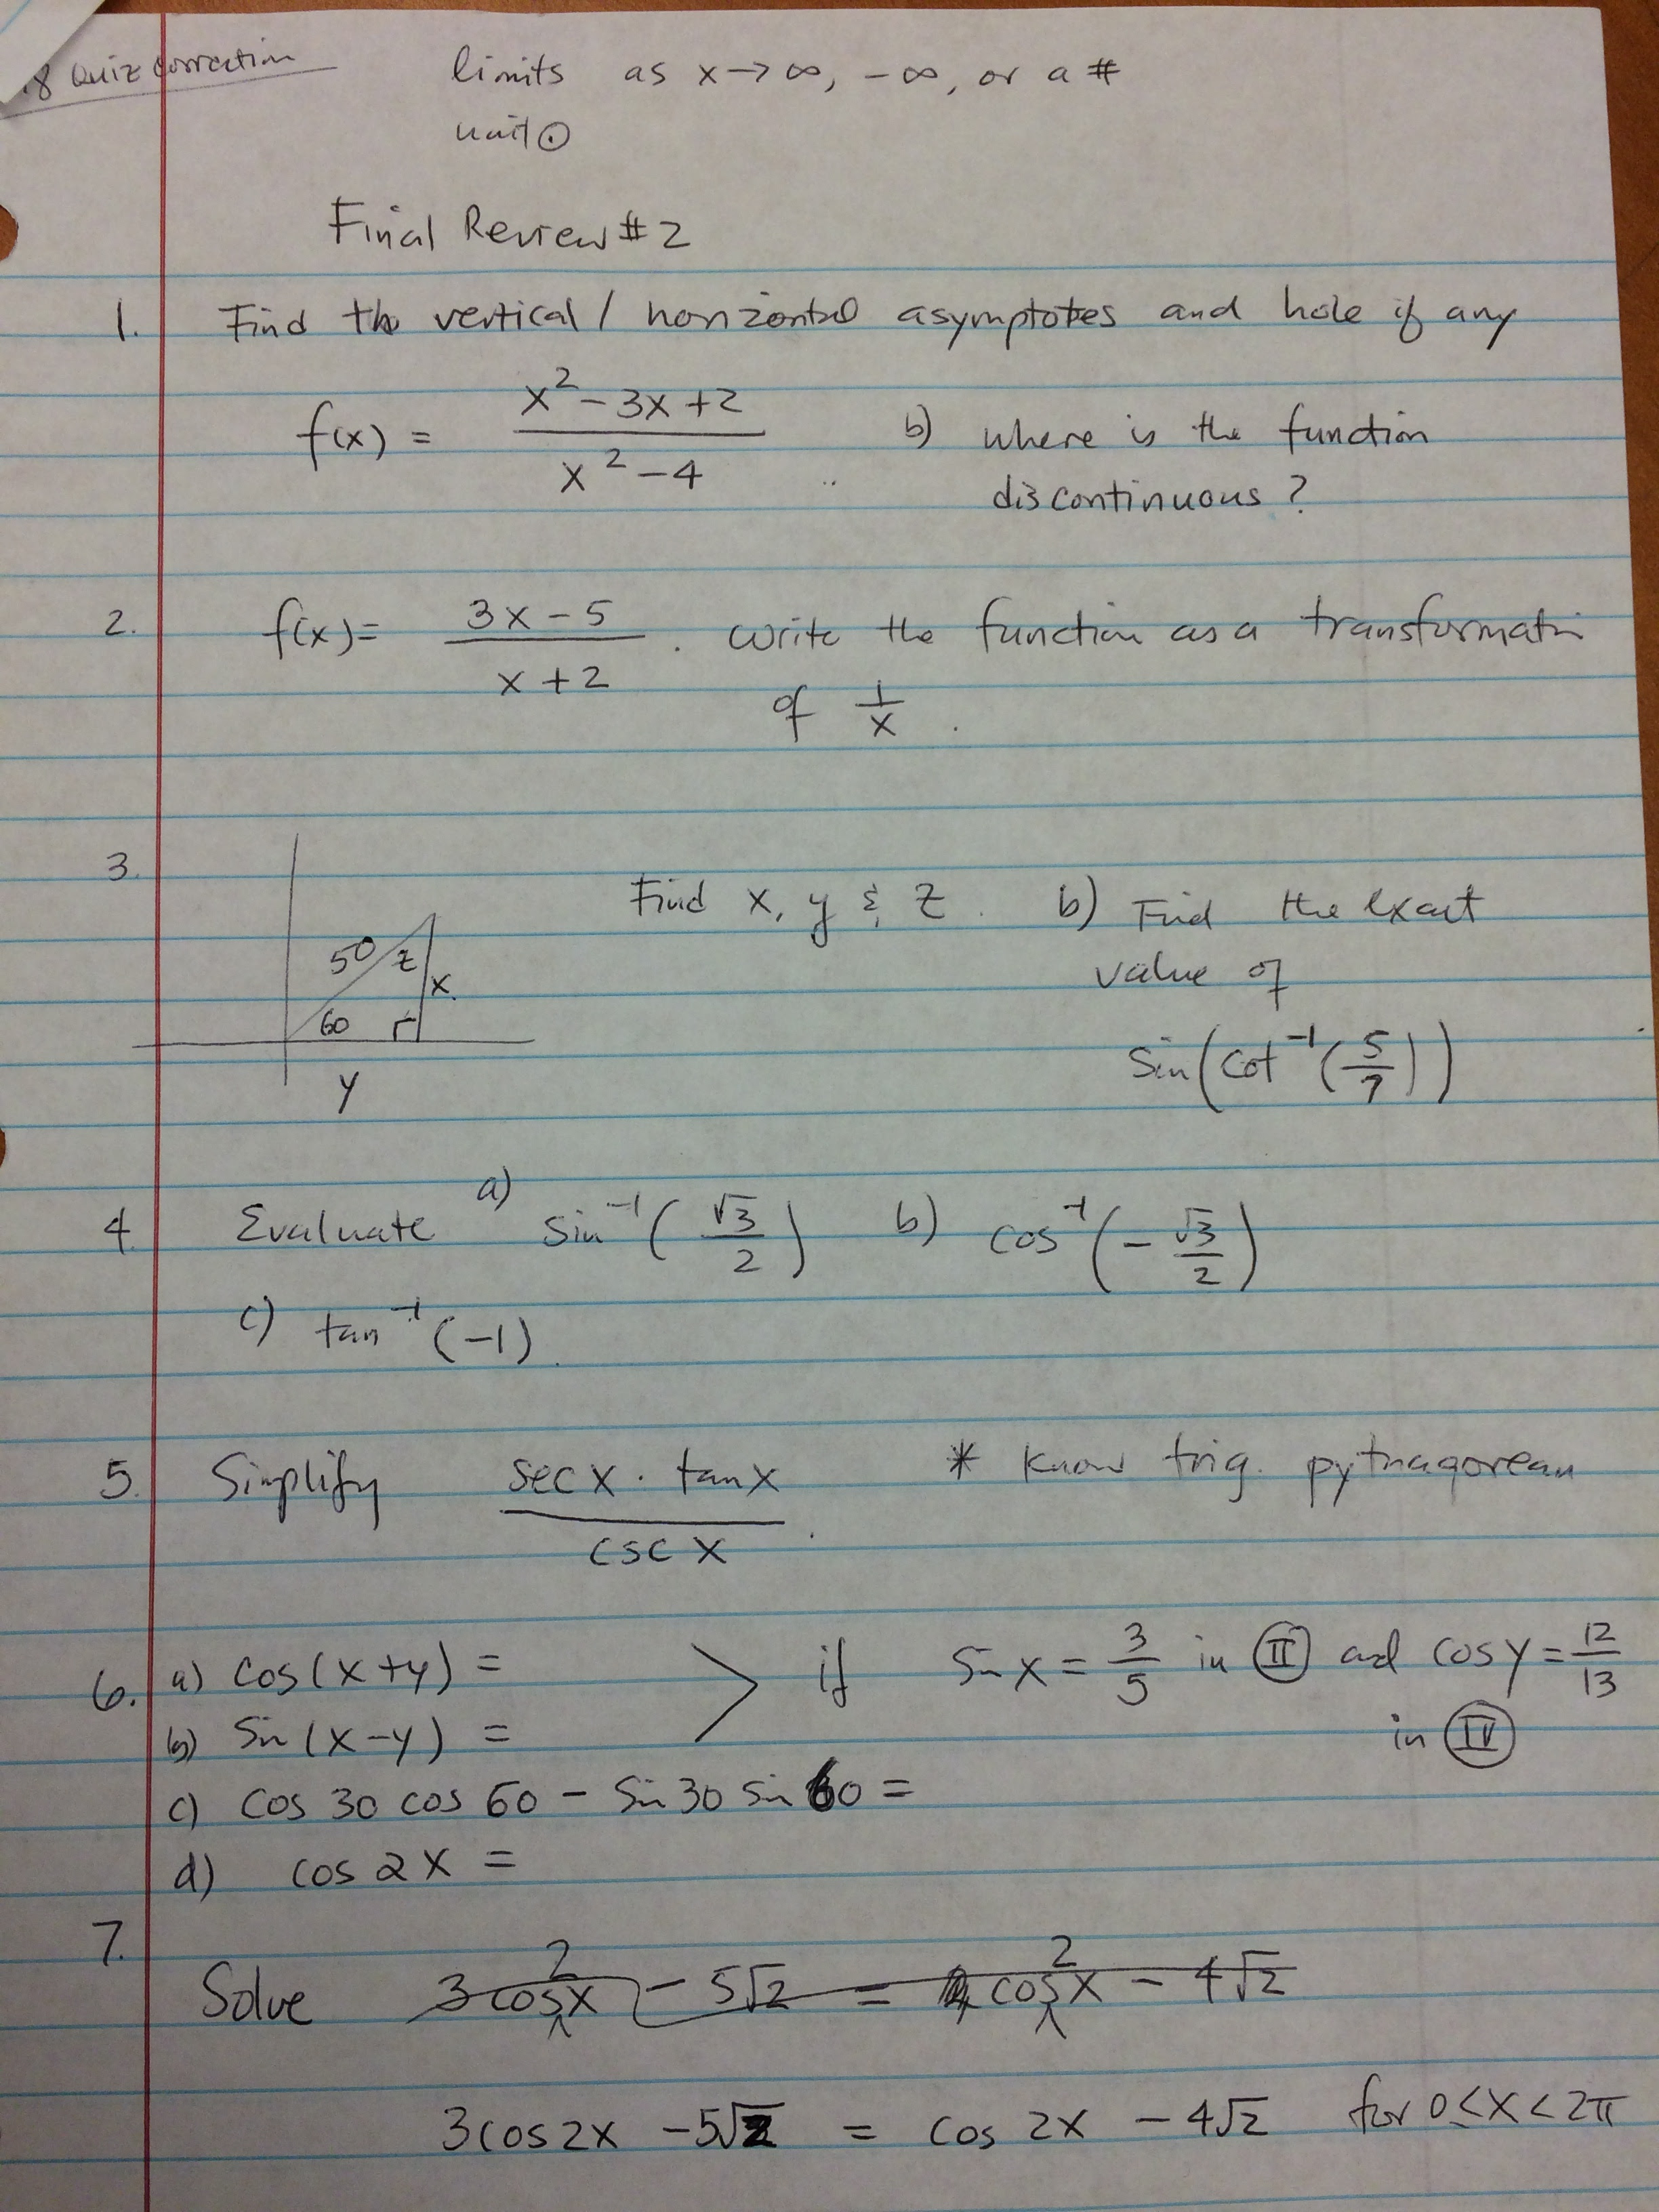 .8 Quiz correction
limits as x→∞, -∞, or a #
unit ⊙
Final Review #2
1. Find the vertical / horizontal asymptotes and hole if any
f(x) = (x² - 3x + 2)/(x² - 4) b) where is the function
discontinuous?
2. f(x) = (3x - 5)/(x + 2). Write the function as a transformati
of 1/x.
3. Find x, y & z. b) Find the exact
value of
sin(cot⁻¹(5/7))
50 z
x.
60
y
4. Evaluate a) sin⁻¹(√3/2) b) cos⁻¹(-√3/2)
c) tan⁻¹(-1).
5. Simplify (sec x · tan x)/(csc x). * Know trig. pythagorean
6. a) cos(x+y) = > if sin x = 3/5 in II and cos y = 12/13
b) sin(x-y) = in IV
c) cos 30 cos 60 - sin 30 sin 60 =
d) cos 2x =
7.
Solve 3cos²x - 5√2 = cos²x - 4√2
3cos2x - 5√2 = cos 2x - 4√2 for 0≤x<2π